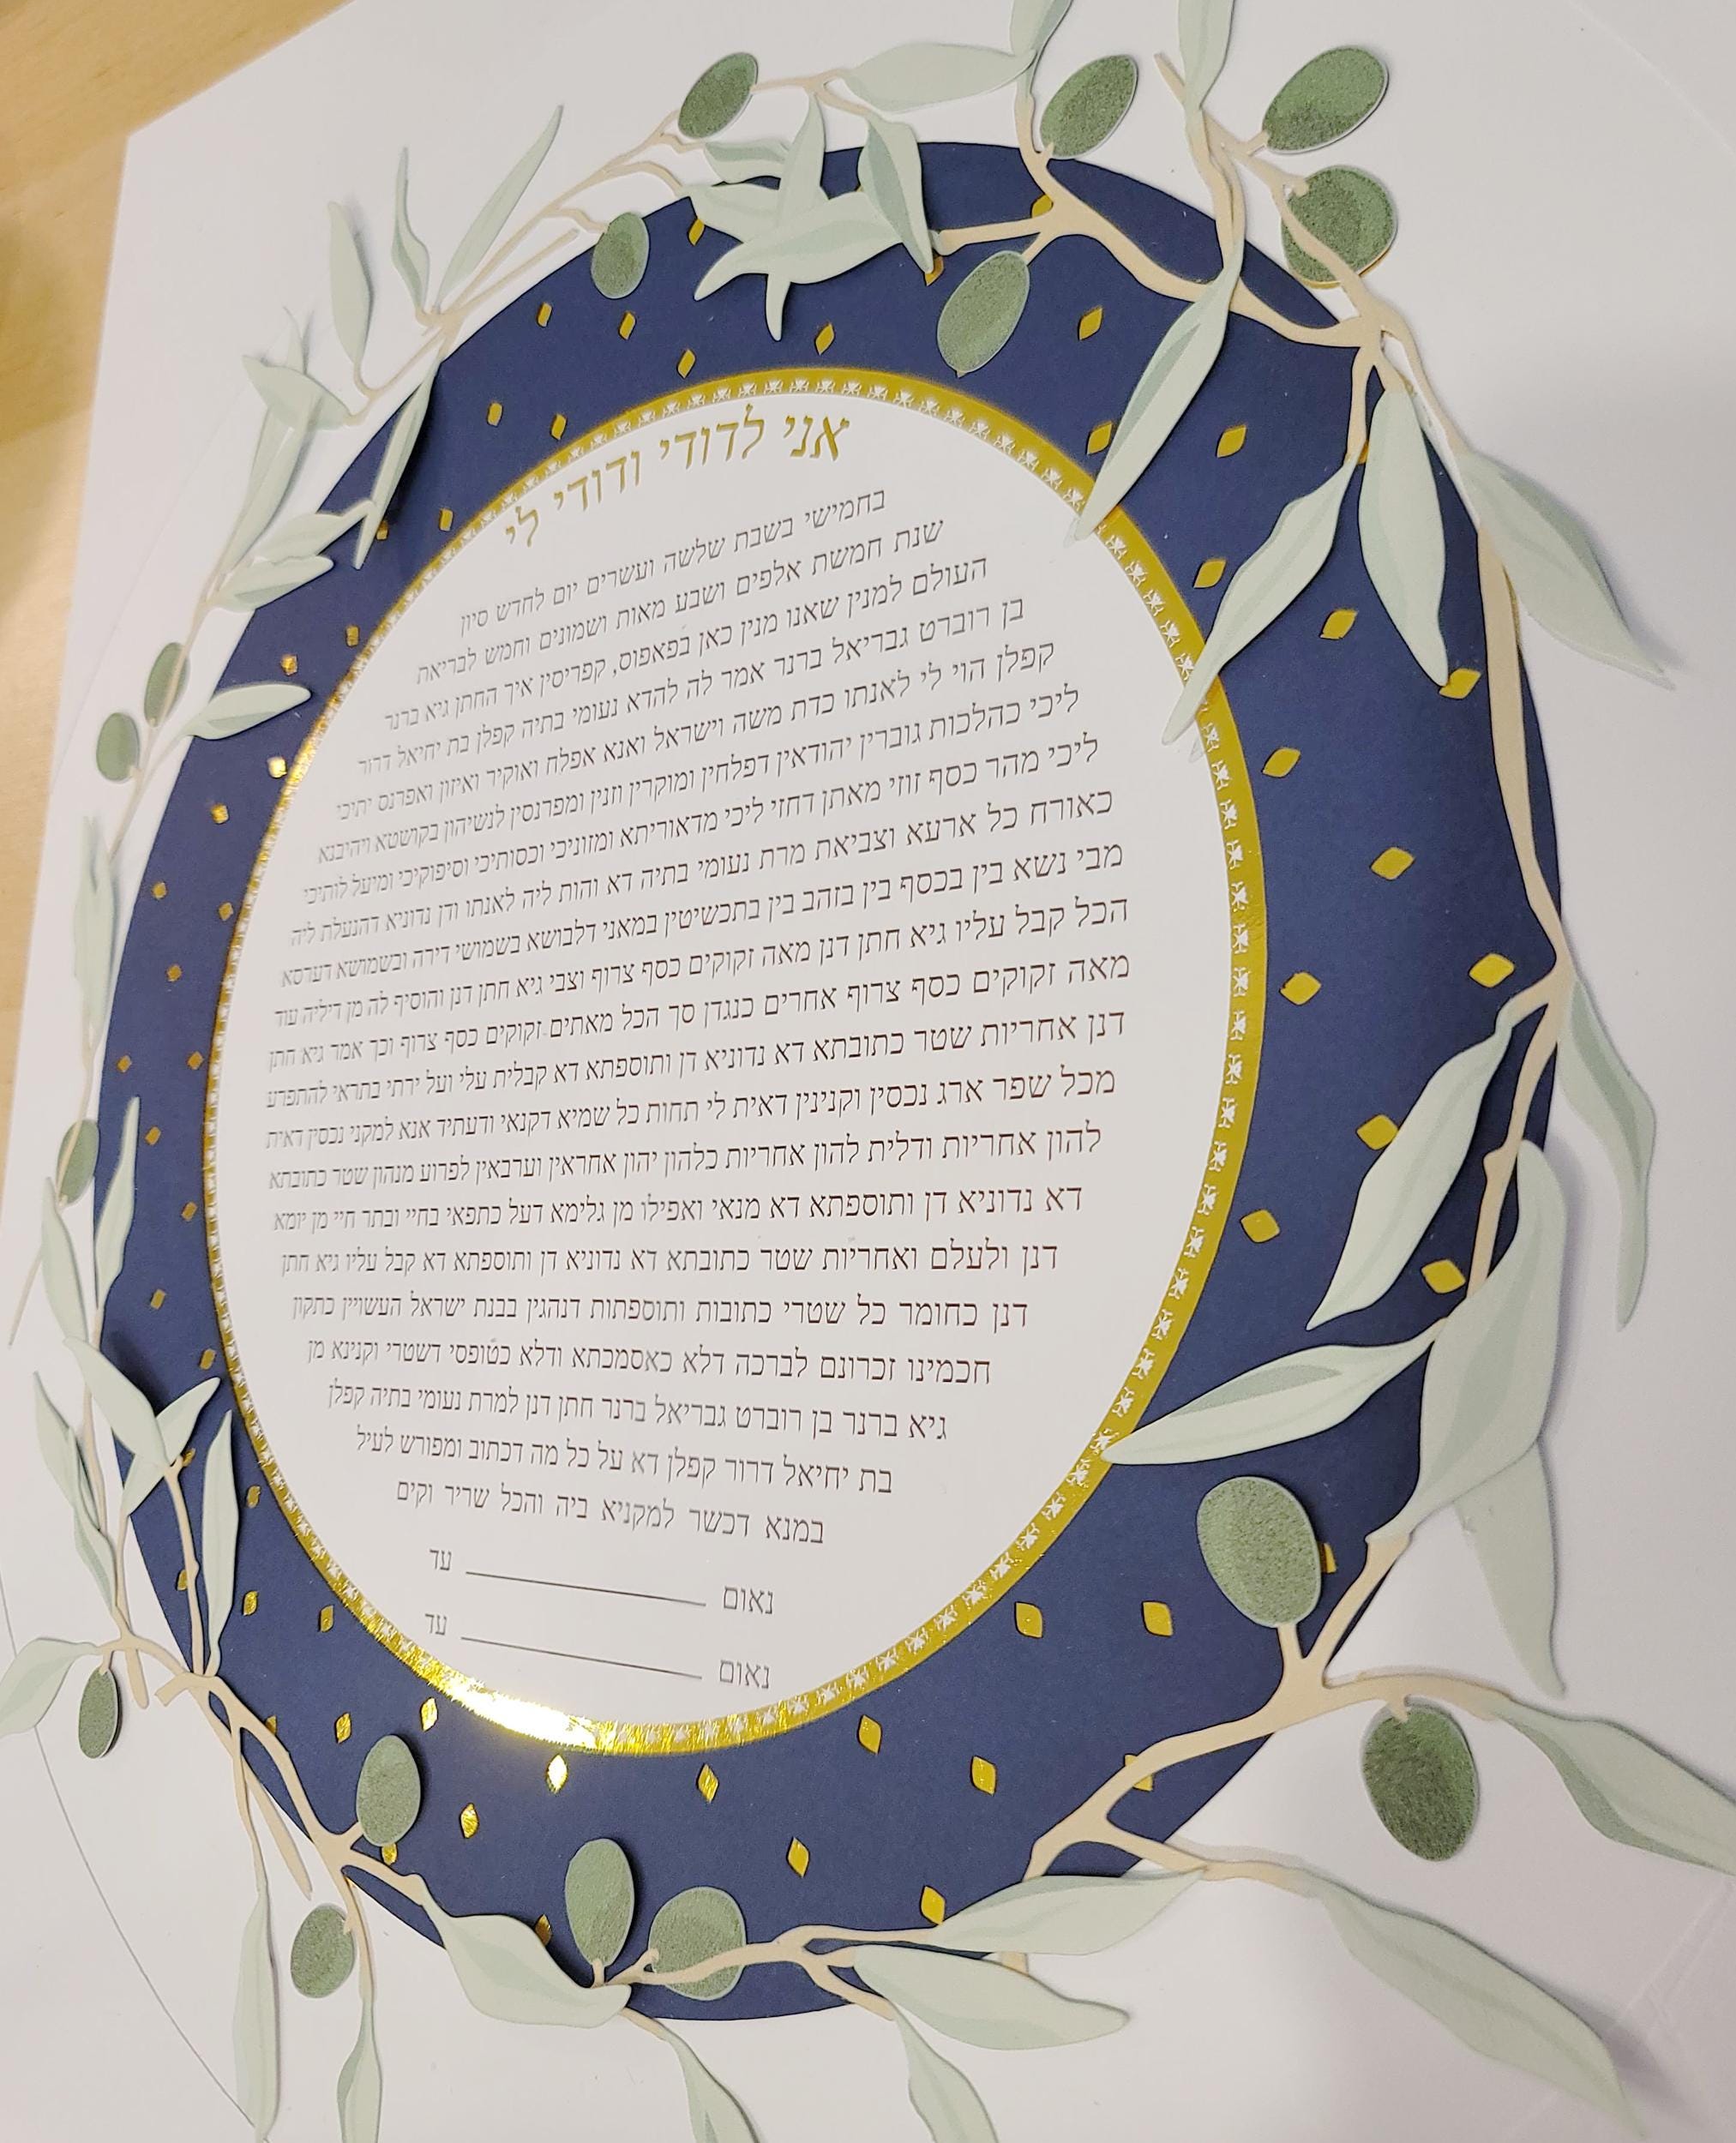 אני לדודי ודודי לי
בחמישי בשבת שלשה ועשרים יום לחדש סיון
שנת חמשת אלפים ושבע מאות ושמונים וחמש לבריאת
העולם למנין שאנו מנין כאן בפאפוס, קפריסין איך החתן גיא ברנר
בן רוברט גבריאל ברנר אמר לה להדא נעומי בתיה קפלן בת יחיאל דרור
קפלן הוי לי לאנתו כדת משה וישראל ואנא אפלח ואוקיר ואיזון ואפרנס יתיכי
ליכי כהלכות גוברין יהודאין דפלחין ומוקרין וזנין ומפרנסין לנשיהון בקושטא ויהיבנא
ליכי מהר כסף זוזי מאתן דחזי ליכי מדאוריתא ומזוניכי וכסותיכי וסיפוקיכי ומיעל לותיכי
כאורח כל ארעא וצביאת מרת נעומי בתיה דא והות ליה לאנתו ודן נדוניא דהנעלת ליה
מבי נשא בין בכסף בין בזהב בין בתכשיטין במאני דלבושא בשמושי דירה ובשמושא דערסא
הכל קבל עליו גיא חתן דנן מאה זקוקים כסף צרוף וצבי גיא חתן דנן והוסיף לה מן דיליה עוד
מאה זקוקים כסף צרוף אחרים כנגדן סך הכל מאתים זקוקים כסף צרוף וכך אמר גיא חתן
דנן אחריות שטר כתובתא דא נדוניא דן ותוספתא דא קבלית עלי ועל ירתי בתראי להתפרע
מכל שפר ארג נכסין וקנינין דאית לי תחות כל שמיא דקנאי ודעתיד אנא למקני נכסין דאית
להון אחריות ודלית להון אחריות כלהון יהון אחראין וערבאין לפרוע מנהון שטר כתובתא
דא נדוניא דן ותוספתא דא מנאי ואפילו מן גלימא דעל כתפאי בחיי ובתר חיי מן יומא
דנן ולעלם ואחריות שטר כתובתא דא נדוניא דן ותוספתא דא קבל עליו גיא חתן
דנן כחומר כל שטרי כתובות ותוספתות דנהגין בבנת ישראל העשויין כתקון
חכמינו זכרונם לברכה דלא כאסמכתא ודלא כטופסי דשטרי וקנינא מן
גיא ברנר בן רוברט גבריאל ברנר חתן דנן למרת נעומי בתיה קפלן
בת יחיאל דרור קפלן דא על כל מה דכתוב ומפורש לעיל
במנא דכשר למקניא ביה והכל שריר וקים
נאום ____________ עד
נאום ____________ עד